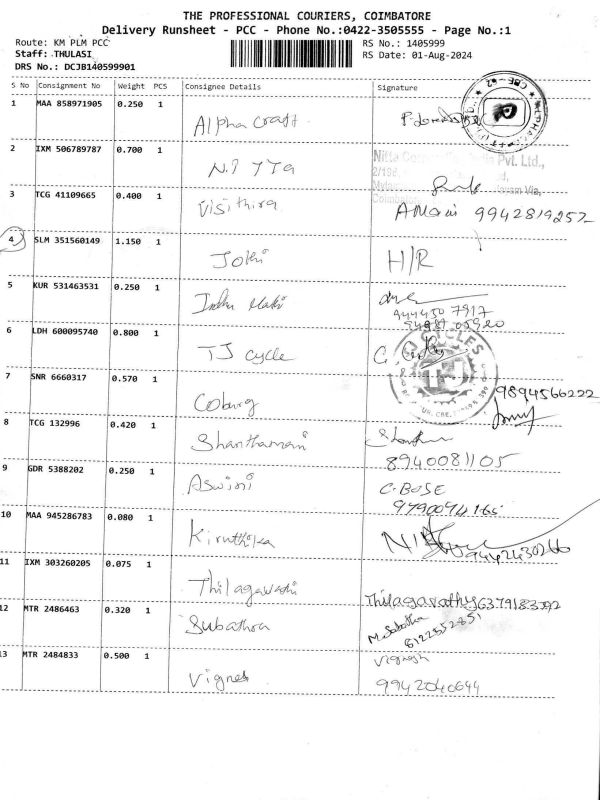 THE PROFESSIONAL COURIERS, COIMBATORE
Delivery Runsheet - PCC - Phone No.:0422-3505555 - Page No.:1
Route: KM PLM PCC
Staff: THULASI
DRS No.: DCJB140599901
RS No.: 1405999
RS Date: 01-Aug-2024
S No Consignment No Weight PCS Consignee Details Signature
1 MAA 858971905 0.250 1 Alpha Craft
2 IXM 506789787 0.700 1
Nitta Pvt. Ltd.,
2/196,
3 TCG 41109665 0.400 1 Visithira A.Mani 9942819257
4 SLM 351560149 1.150 1 Jothi H/R
5 KUR 531463531 0.250 1
944450 7917
94981 05920
6 LDH 600095740 0.800 1 TJ cycle
CYCLES
7 SNR 6660317 0.570 1 Coburg 9894566222
8 TCG 132996 0.420 1 Shanthamani
8940081105
9 GDR 5388202 0.250 1 Aswini C.BOSE
9790094165
10 MAA 945286783 0.080 1 Kiruthika 9442430266
11 IXM 303260205 0.075 1 Thilagavathi Thilagavathy
12 MTR 2486463 0.320 1 Subathra M.Subatha
8122552851
13 MTR 2484833 0.500 1 Vignesh Vignesh
9942040644